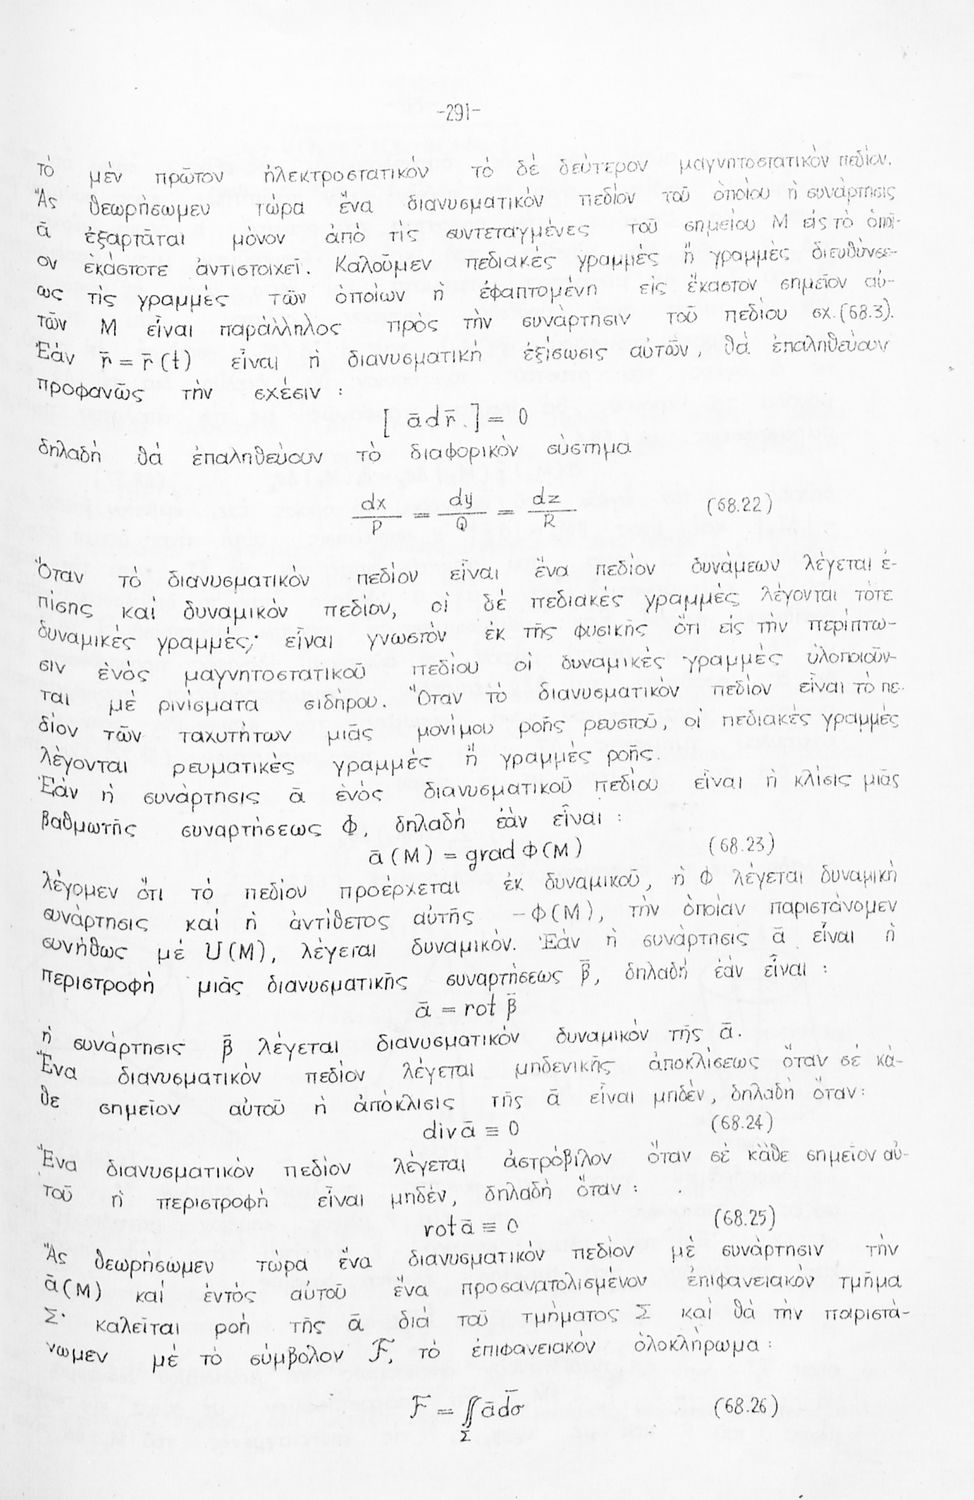 -291-
τὸ μέν πρῶτον ἠλεκτροστατικόν τὸ δέ δεύτερον μαγνητοστατικόν πεδίον.
Ἄς θεωρήσωμεν τώρα ἕνα διανυσματικόν πεδίον τοῦ ὁποίου ἡ συνάρτησις
ᾱ ἐξαρτᾶται μόνον ἀπό τίς συντεταγμένες τοῦ σημείου Μ εἰς τὸ ὁποῖ-
ον ἑκάστοτε ἀντιστοιχεῖ. Καλοῦμεν πεδιακές γραμμές ἤ γραμμές διευθύνσε-
ως τίς γραμμές τῶν ὁποίων ἡ ἐφαπτομένη εἰς ἕκαστον σημεῖον αὐ-
τῶν Μ εἶναι παράλληλος πρός τὴν συνάρτησιν τοῦ πεδίου σχ.(68.3).
Ἐάν r̄ = r̄(t) εἶναι ἡ διανυσματική ἐξίσωσις αὐτῶν, θά ἐπαληθεύουν
προφανῶς τὴν σχέσιν :
[ ā d r̄ ] = 0
δηλαδή θά ἐπαληθεύουν τὸ διαφορικόν σύστημα
dx/P = dy/Q = dz/R (68.22)
Ὅταν τὸ διανυσματικόν πεδίον εἶναι ἕνα πεδίον δυνάμεων λέγεται ἐ-
πίσης καί δυναμικόν πεδίον, οἱ δέ πεδιακές γραμμές λέγονται τότε
δυναμικές γραμμές· εἶναι γνωστόν ἐκ τῆς φυσικῆς ὅτι εἰς τὴν περίπτω-
σιν ἑνός μαγνητοστατικοῦ πεδίου οἱ δυναμικές γραμμές ὑλοποιοῦν-
ται μέ ρινίσματα σιδήρου. Ὅταν τὸ διανυσματικόν πεδίον εἶναι τὸ πε-
δίον τῶν ταχυτήτων μιᾶς μονίμου ροῆς ρευστοῦ, οἱ πεδιακές γραμμές
λέγονται ρευματικές γραμμές ἤ γραμμές ροῆς.
Ἐάν ἡ συνάρτησις ᾱ ἑνός διανυσματικοῦ πεδίου εἶναι ἡ κλίσις μιᾶς
βαθμωτῆς συναρτήσεως Φ, δηλαδή ἐάν εἶναι :
ā(M) = grad Φ(M) (68.23)
λέγομεν ὅτι τὸ πεδίον προέρχεται ἐκ δυναμικοῦ, ἡ Φ λέγεται δυναμική
συνάρτησις καί ἡ ἀντίθετος αὐτῆς -Φ(Μ), τὴν ὁποίαν παριστάνομεν
συνήθως μέ U(M), λέγεται δυναμικόν. Ἐάν ἡ συνάρτησις ᾱ εἶναι ἡ
περιστροφή μιᾶς διανυσματικῆς συναρτήσεως β̄, δηλαδή ἐάν εἶναι :
ā = rot β̄
ἡ συνάρτησις β̄ λέγεται διανυσματικόν δυναμικόν τῆς ᾱ.
Ἕνα διανυσματικόν πεδίον λέγεται μηδενικῆς ἀποκλίσεως ὅταν σέ κά-
θε σημεῖον αὐτοῦ ἡ ἀπόκλισις τῆς ᾱ εἶναι μηδέν, δηλαδή ὅταν:
div ā ≡ 0 (68.24)
Ἕνα διανυσματικόν πεδίον λέγεται ἀστρόβιλον ὅταν σέ κάθε σημεῖον αὐ-
τοῦ ἡ περιστροφή εἶναι μηδέν, δηλαδή ὅταν :
rot ā ≡ 0 (68.25)
Ἄς θεωρήσωμεν τώρα ἕνα διανυσματικόν πεδίον μέ συνάρτησιν τὴν
ᾱ(Μ) καί ἐντός αὐτοῦ ἕνα προσανατολισμένον ἐπιφανειακόν τμῆμα
Σ· καλεῖται ροή τῆς ᾱ διά τοῦ τμήματος Σ καί θά τὴν παριστά-
νωμεν μέ τὸ σύμβολον ℱ, τὸ ἐπιφανειακόν ὁλοκλήρωμα :
ℱ = ∬_Σ ā d̄σ (68.26)